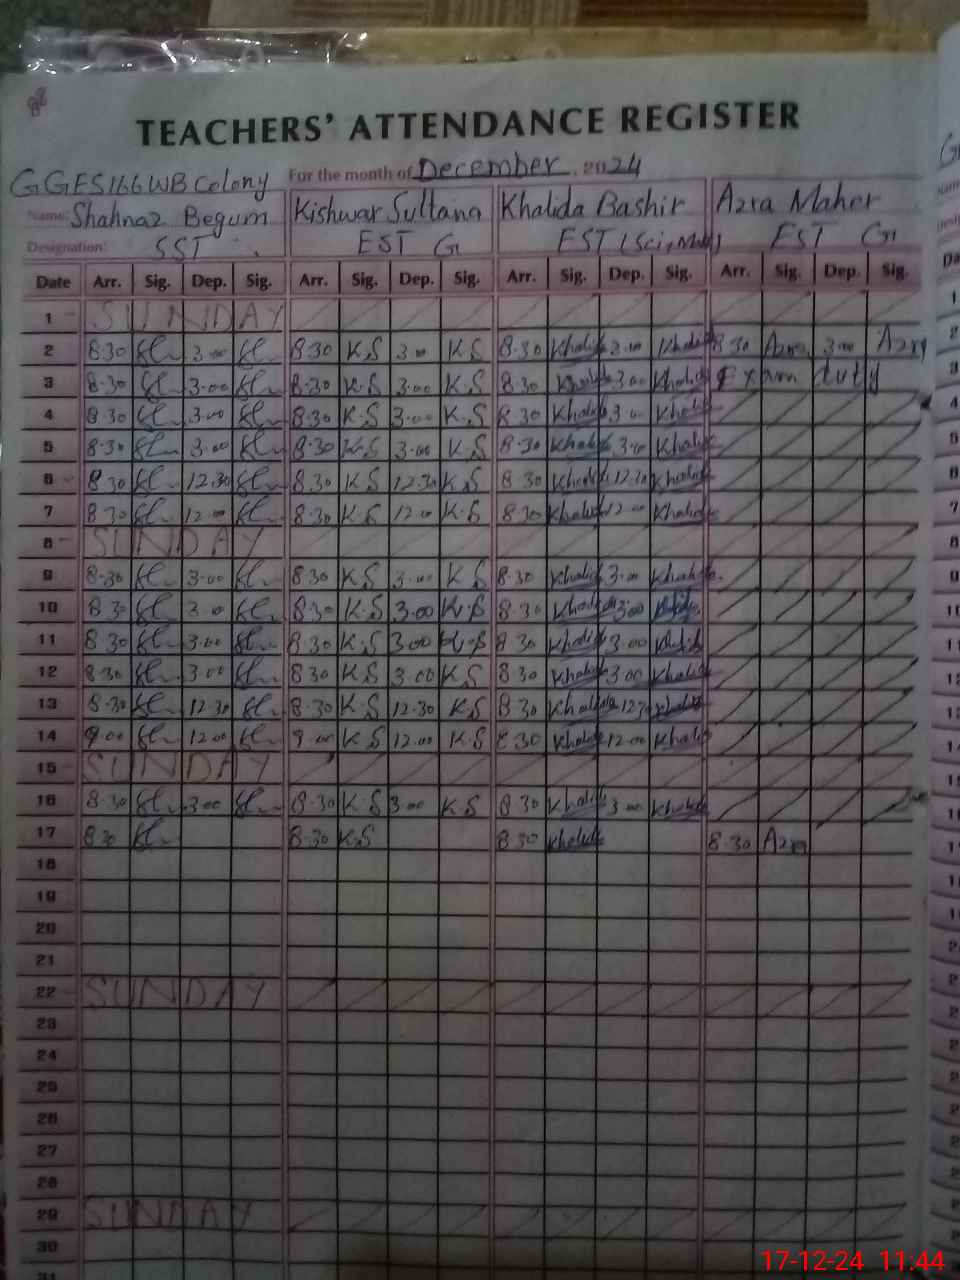 88
TEACHERS' ATTENDANCE REGISTER
GGES 166 WB Colony For the month of December, 2024
Name: Shahnaz Begum Kishwar Sultana Khalida Bashir Azra Maher
Designation: SST EST G EST (Sci, Math) EST G
Date Arr. Sig. Dep. Sig. Arr. Sig. Dep. Sig. Arr. Sig. Dep. Sig. Arr. Sig. Dep. Sig.
1 SUNDAY
2 8.30 3.00 8.30 K.S 3.00 K.S 8.30 Khalida 3.00 Khalida 8.30 Azra 3.00 Azra
3 8.30 3.00 8.30 K.S 3.00 K.S 8.30 Khalida 3.00 Khalida Exam duty
4 8.30 3.00 8.30 K.S 3.00 K.S 8.30 Khalida 3.00 Khalida
5 8.30 3.00 8.30 K.S 3.00 K.S 8.30 Khalida 3.00 Khalida
6 8.30 12.30 8.30 K.S 12.30 K.S 8.30 Khalida 12.30 Khalida
7 8.30 12.00 8.30 K.S 12.00 K.S 8.30 Khalida 12.00 Khalida
8 SUNDAY
9 8.30 3.00 8.30 K.S 3.00 K.S 8.30 Khalida 3.00 Khalida
10 8.30 3.00 8.30 K.S 3.00 K.S 8.30 Khalida 3.00
11 8.30 3.00 8.30 K.S 3.00 K.S 8.30 Khalida 3.00
12 8.30 3.00 8.30 K.S 3.00 K.S 8.30 Khalida 3.00 Khalida
13 8.30 12.30 8.30 K.S 12.30 K.S 8.30 Khalida 12.30 Khalida
14 9.00 12.00 9.00 K.S 12.00 K.S 8.30 Khalida 12.00 Khalida
15 SUNDAY
16 8.30 3.00 8.30 K.S 3.00 K.S 8.30 Khalida 3.00 Khalida
17 8.30 8.30 K.S 8.30 Khalida 8.30 Azra
18
19
20
21
22 SUNDAY
23
24
25
26
27
28
29 SUNDAY
30
31
17-12-24 11:44